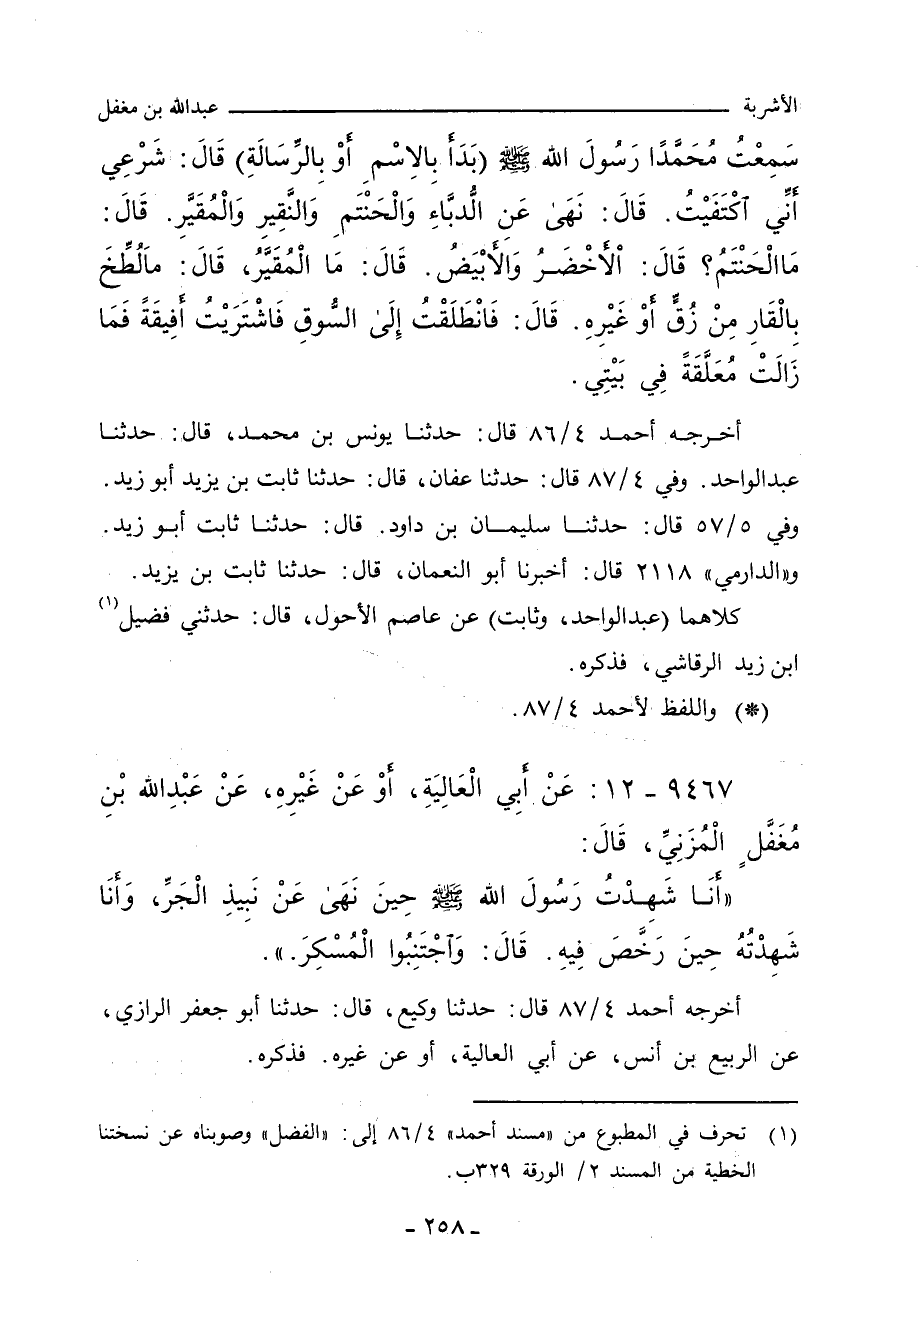 الأشربة ــــــــ عبدالله بن مغفل
سَمِعْتُ مُحَمَّدًا رَسُولَ الله ﷺ (بَدَأَ بِالِاسْمِ أَوْ بِالرِّسَالَةِ) قَالَ: شَرْعِي
أَنِّي ٱكْتَفَيْتُ. قَالَ: نَهَىٰ عَنِ الْدُّبَّاءِ وَالْحَنْتَمِ وَالنَّقِيرِ وَالْمُقَيَّرِ. قَالَ:
مَاالْحَنْتَمُ؟ قَالَ: الْأَخْضَرُ وَالْأَبْيَضُ. قَالَ: مَا الْمُقَيَّرُ، قَالَ: مالُطِّخَ
بِالْقَارِ مِنْ زُقٍّ أَوْ غَيْرِهِ. قَالَ: فَانْطَلَقْتُ إِلَىٰ السُّوقِ فَاشْتَرَيْتُ أَفِيقَةً فَمَا
زَالَتْ مُعَلَّقَةً فِي بَيْتِي.
أخرجه أحمد ٨٦/٤ قال: حدثنا يونس بن محمد، قال: حدثنا
عبدالواحد. وفي ٨٧/٤ قال: حدثنا عفان، قال: حدثنا ثابت بن يزيد أبو زيد.
وفي ٥٧/٥ قال: حدثنا سليمان بن داود. قال: حدثنا ثابت أبو زيد.
و«الدارمي» ٢١١٨ قال: أخبرنا أبو النعمان، قال: حدثنا ثابت بن يزيد.
كلاهما (عبدالواحد، وثابت) عن عاصم الأحول، قال: حدثني فضيل(١)
ابن زيد الرقاشي، فذكره.
(*) واللفظ لأحمد ٨٧/٤.
٩٤٦٧ ـ ١٢: عَنْ أَبِي الْعَالِيَةِ، أَوْ عَنْ غَيْرِهِ، عَنْ عَبْدِالله بْنِ
مُغَفَّلٍ الْمُزَنِيِّ، قَالَ:
«أَنَا شَهِدْتُ رَسُولَ الله ﷺ حِينَ نَهَىٰ عَنْ نَبِيذِ الْجَرِّ، وَأَنَا
شَهِدْتُهُ حِينَ رَخَّصَ فِيهِ. قَالَ: وَٱجْتَنِبُوا الْمُسْكِرَ.».
أخرجه أحمد ٨٧/٤ قال: حدثنا وكيع، قال: حدثنا أبو جعفر الرازي،
عن الربيع بن أنس، عن أبي العالية، أو عن غيره. فذكره.
(١) تحرف في المطبوع من «مسند أحمد» ٨٦/٤ إلى: «الفضل» وصوبناه عن نسختنا
الخطية من المسند ٢/ الورقة ٣٢٩ب.
ـ ٢٥٨ ـ